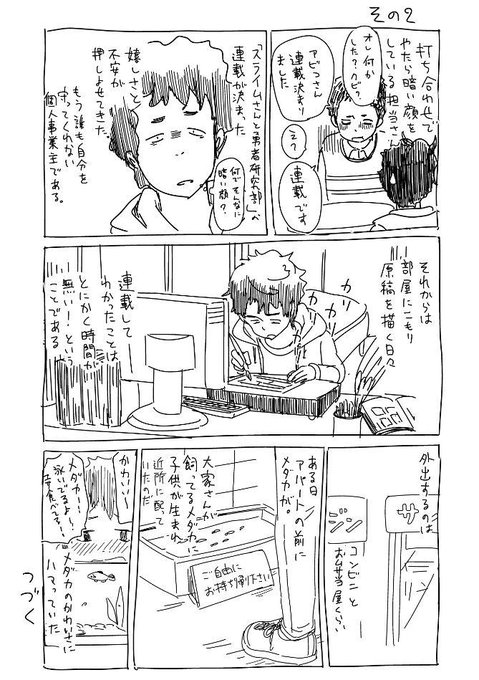 その2
打ち合わせで
やたら暗い顔を
している担当さん
オレ何か
した?クビ?
アビコさん
連載決まり
ました
え?
連載です
「スライムさんと勇者研究部」の
連載が決まった
嬉しさと
不安が
押しよせてきた
何でそんなに
暗い顔?
もう誰も自分を
守ってくれない
個人事業主である。
それからは
部屋にこもり
原稿を描く日々
カリ
カリ
カリ
連載して
わかったことは
とにかく時間が
無いーという
ことである
外出するのは
サ
コンビニと
お弁当屋くらい
ある日
アパートの前に
メダカが。
大家さんが
飼ってるメダカに
子供が生まれ
近所に配って
いたのだ
ご自由に
お持ち下さい
かわいいー
メダカー!
泳いでるよ〜
メダカのかわいさに
ハマっていた
つづく